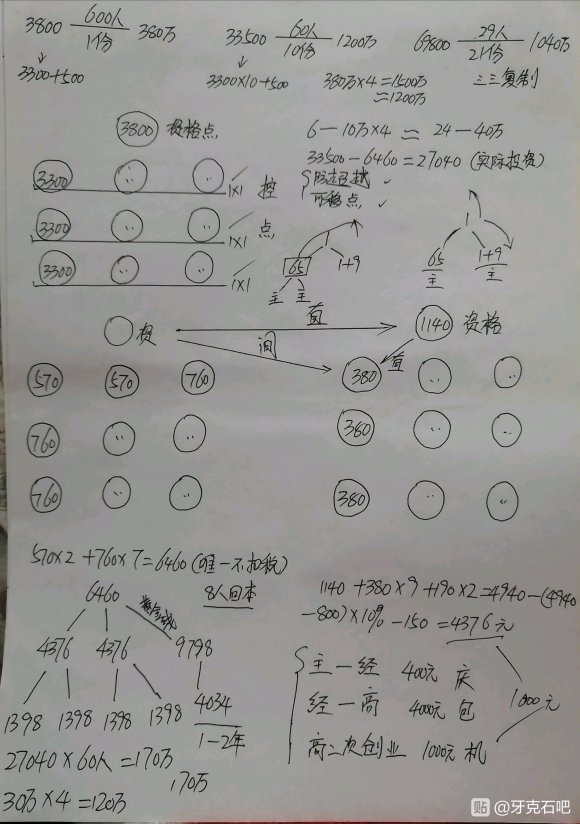 3800 600人 1份 380万
3300+500
33500 60人 10份 1200万
3300×10+500
69800 29人 21份 1040万
380万×4=1500万
≈1200万
三三复制
3800 资格点
6—10万×4 = 24—40万
33500-6460=27040 (实际投资)
可移点
3300 1×1 控
3300 1×1 点
3300 1×1
65 1+9
主 主
1
65 1+9
主 主
直
1140 资格
间
直
570 570 760
760
760
380
380
380
570×2+760×7=6460(唯一不扣税)
8人回本
6460
4376 4376 9798
1398 1398 1398 1398 4034
1-2年
27040×60人=170万
170万
30万×4=120万
1140+380×9+190×2=4940-(4940
-800)×10%-150=4376元
主一经 400元 庆
经一高 4000元 包
高二次创业 1000元 机
1000元
贴 @牙克石吧